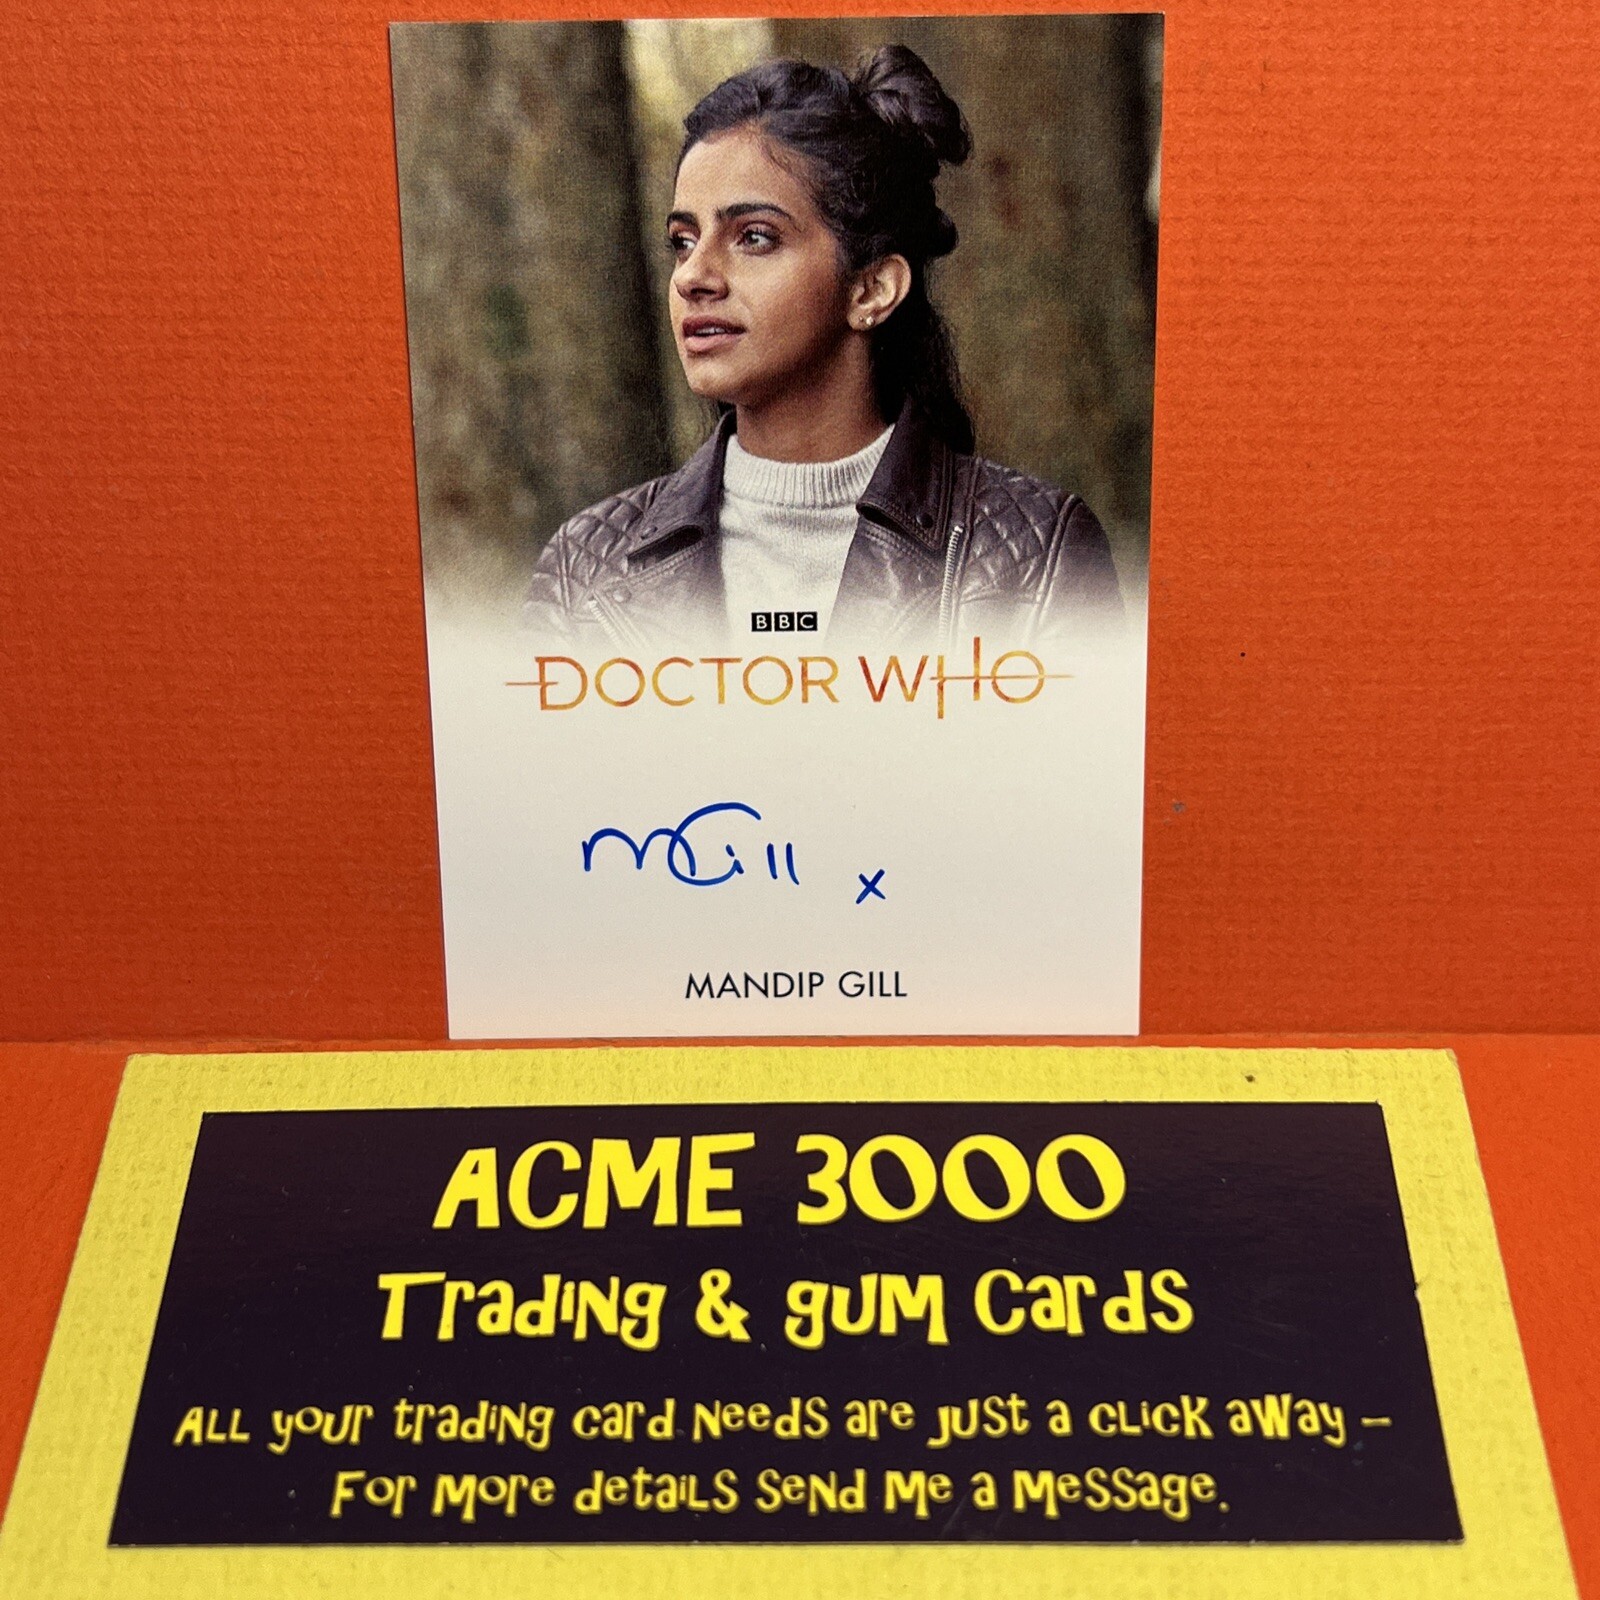 BBC
DOCTOR WHO
MGill x
MANDIP GILL
ACME 3000
Trading & gum Cards
All your trading card needs are just a click away –
For more details send me a message.